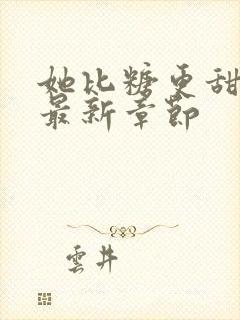 她比糖更甜
最新章节
雲井